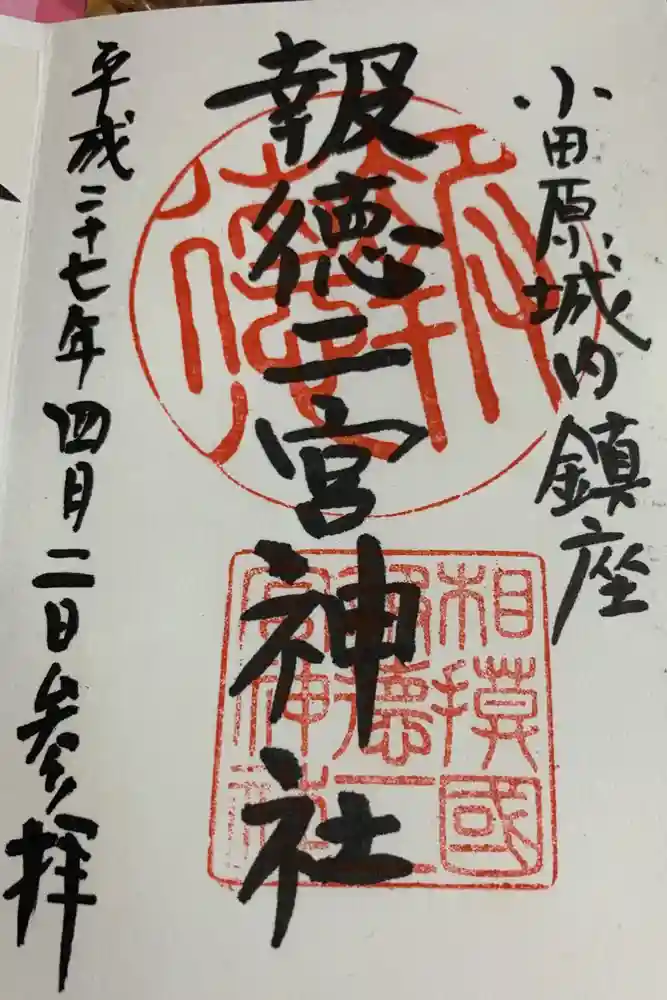 小田原城内鎮座
報徳二宮神社
平成二十七年四月二日参拝
相摸國
報徳二
宮神社